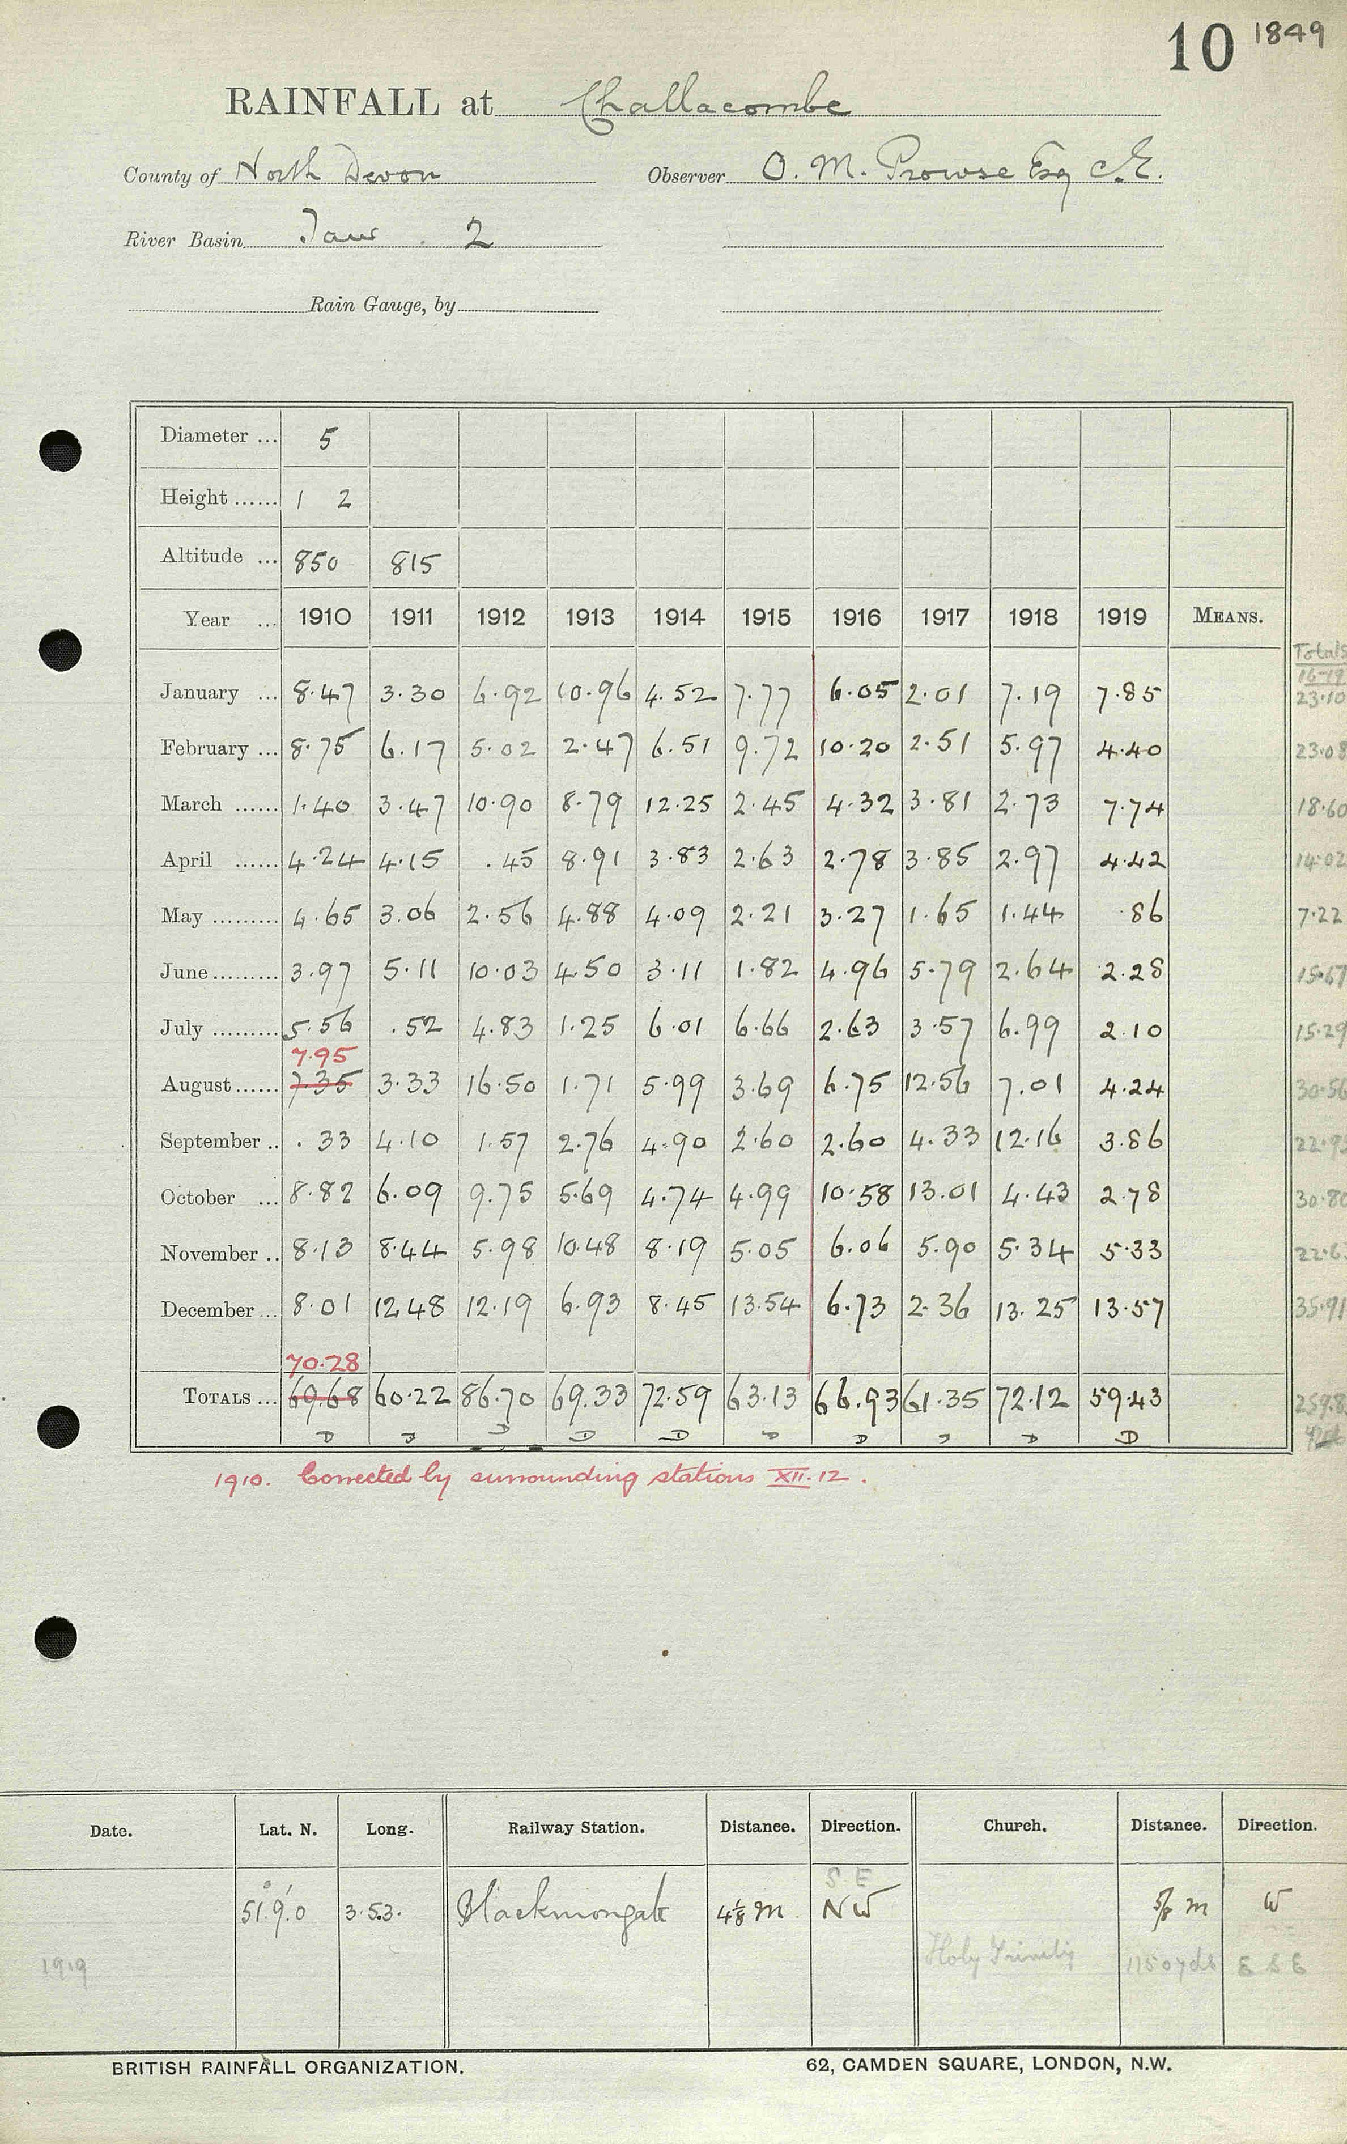 10 1849
RAINFALL at Challacombe
County of North Devon Observer O. M. Prowse Esq C.E.
River Basin Taw . 2
Rain Gauge, by
Diameter ... 5
Height ...... 1 2
Altitude ... 850 815
Year ... 1910 1911 1912 1913 1914 1915 1916 1917 1918 1919 MEANS.
Totals
16-19
January ... 8.47 3.30 6.92 10.96 4.52 7.77 6.05 2.01 7.19 7.85 23.10
February ... 8.75 6.17 5.02 2.47 6.51 9.72 10.20 2.51 5.97 4.40 23.08
March ...... 1.40 3.47 10.90 8.79 12.25 2.45 4.32 3.81 2.73 7.74 18.60
April ...... 4.24 4.15 .45 8.91 3.83 2.63 2.78 3.85 2.97 4.42 14.02
May ......... 4.65 3.06 2.56 4.88 4.09 2.21 3.27 1.65 1.44 .86 7.22
June ......... 3.97 5.11 10.03 4.50 3.11 1.82 4.96 5.79 2.64 2.28 15.67
July ......... 5.56 .52 4.83 1.25 6.01 6.66 2.63 3.57 6.99 2.10 15.29
7.95
August ...... 7.35 3.33 16.50 1.71 5.99 3.69 6.75 12.56 7.01 4.24 30.56
September .. .33 4.10 1.57 2.76 4.90 2.60 2.60 4.33 12.16 3.86 22.95
October ... 8.82 6.09 9.75 5.69 4.74 4.99 10.58 13.01 4.43 2.78 30.80
November .. 8.13 8.44 5.98 10.48 8.19 5.05 6.06 5.90 5.34 5.33 22.63
December ... 8.01 12.48 12.19 6.93 8.45 13.54 6.73 2.36 13.25 13.57 35.91
70.28
TOTALS ... 69.68 60.22 86.70 69.33 72.59 63.13 66.93 61.35 72.12 59.43 259.8
D D D D D D D D D D
1910. Corrected by surrounding stations XII.12.
Date. Lat. N. Long. Railway Station. Distance. Direction. Church. Distance. Direction.
S E
51°9'.0 3.53. Blackmoregate 4⅛ m NW ⅝ m W
1919 Holy Trinity 1150 yds E S E
BRITISH RAINFALL ORGANIZATION. 62, CAMDEN SQUARE, LONDON, N.W.